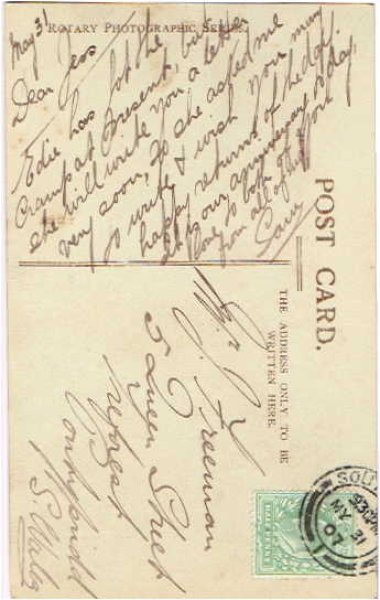 ROTARY PHOTOGRAPHIC SERIES.
May 31
Dear Jess
Edie has got the
cramp at present, but
she will write you a letter
very soon, so she asked me
to write & wish you many
happy returns of the day,
it is your anniversary today,
love to both of you
from all of us
POST CARD.
THE ADDRESS ONLY TO BE
WRITTEN HERE.
Mr J Freeman
5 Queen Street
Newport
S. Wales
HALF PENNY
SOU
930PM
MY 31
07